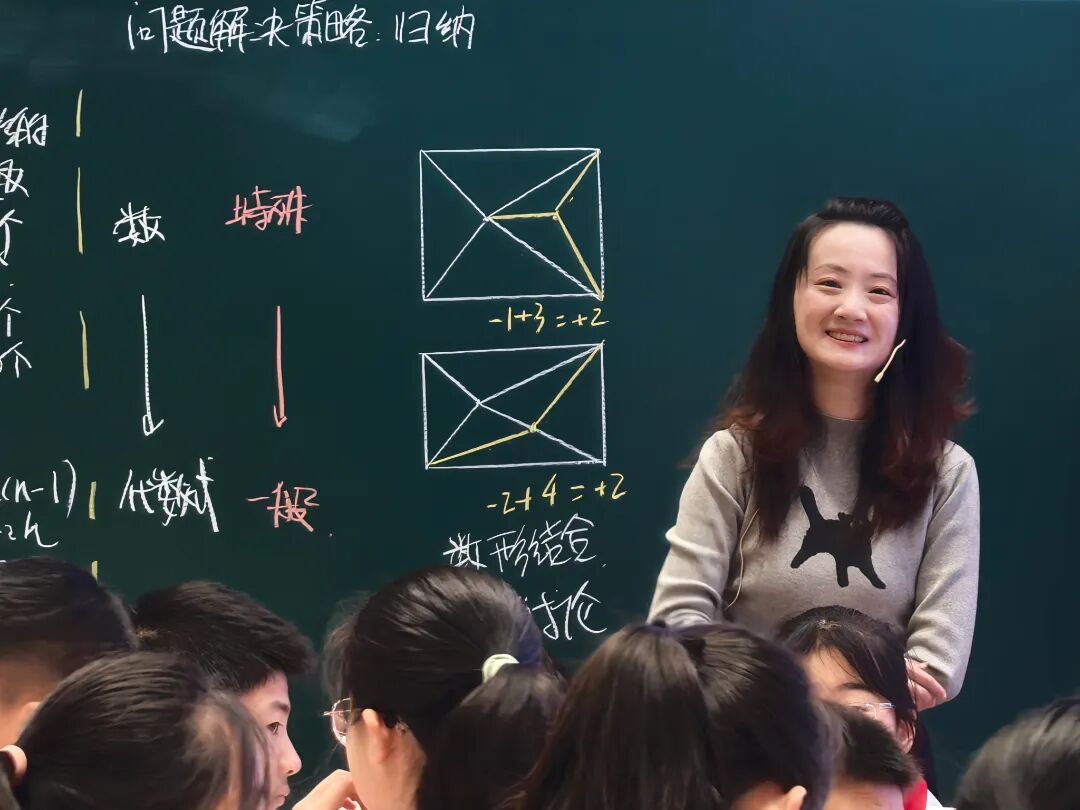 问题解决策略:归纳
数
特殊
-1+3=+2
-2+4=+2
取
个
个
个
(n-1)
2n
代数式
一般
数形结合
讨论